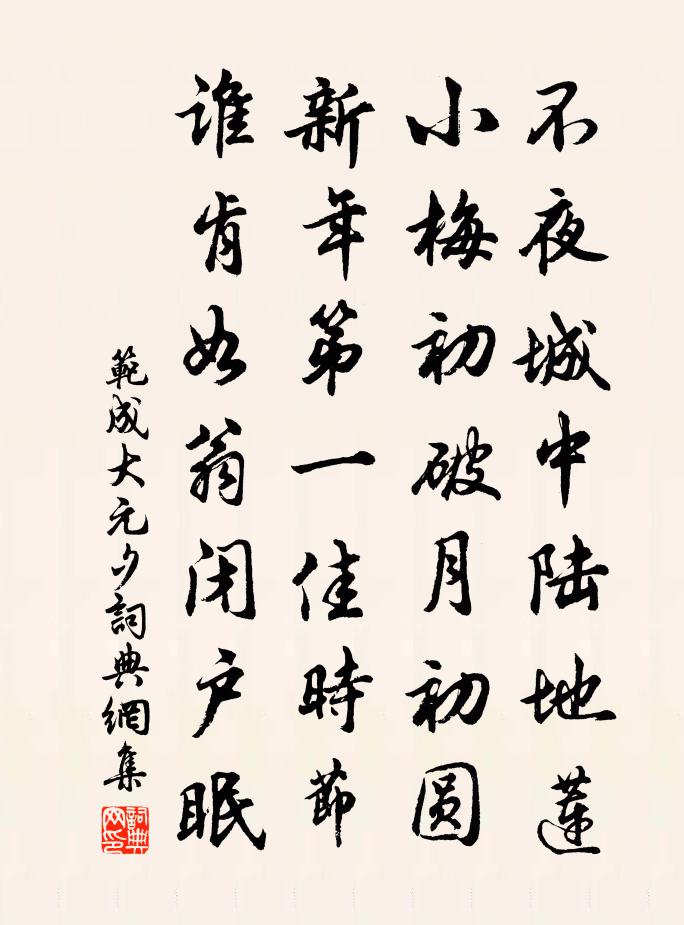 不夜城中陆地蓮
小梅初破月初圆
新年第一佳時節
谁肯如翁闭户眠
範成大元夕詞典網集
詞典網印